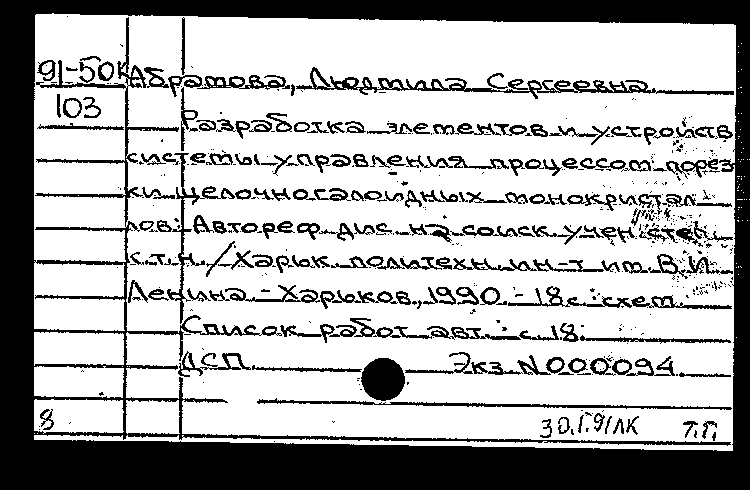 91-50К Абрамова, Людмила Сергеевна.
103
Разработка элементов и устройств
системы управления процессом порез
ки щелочногалоидных монокристал
лов: Автореф. дис. на соиск. учен. степ.
к.т.н. / Харьк. политехн. ин-т им. В.И.
Ленина. - Харьков, 1990. - 18 с.: схем.
Список работ авт.: с. 18.
ДСП. Экз. N000094.
8 30.I.91 ЛК Т.П.